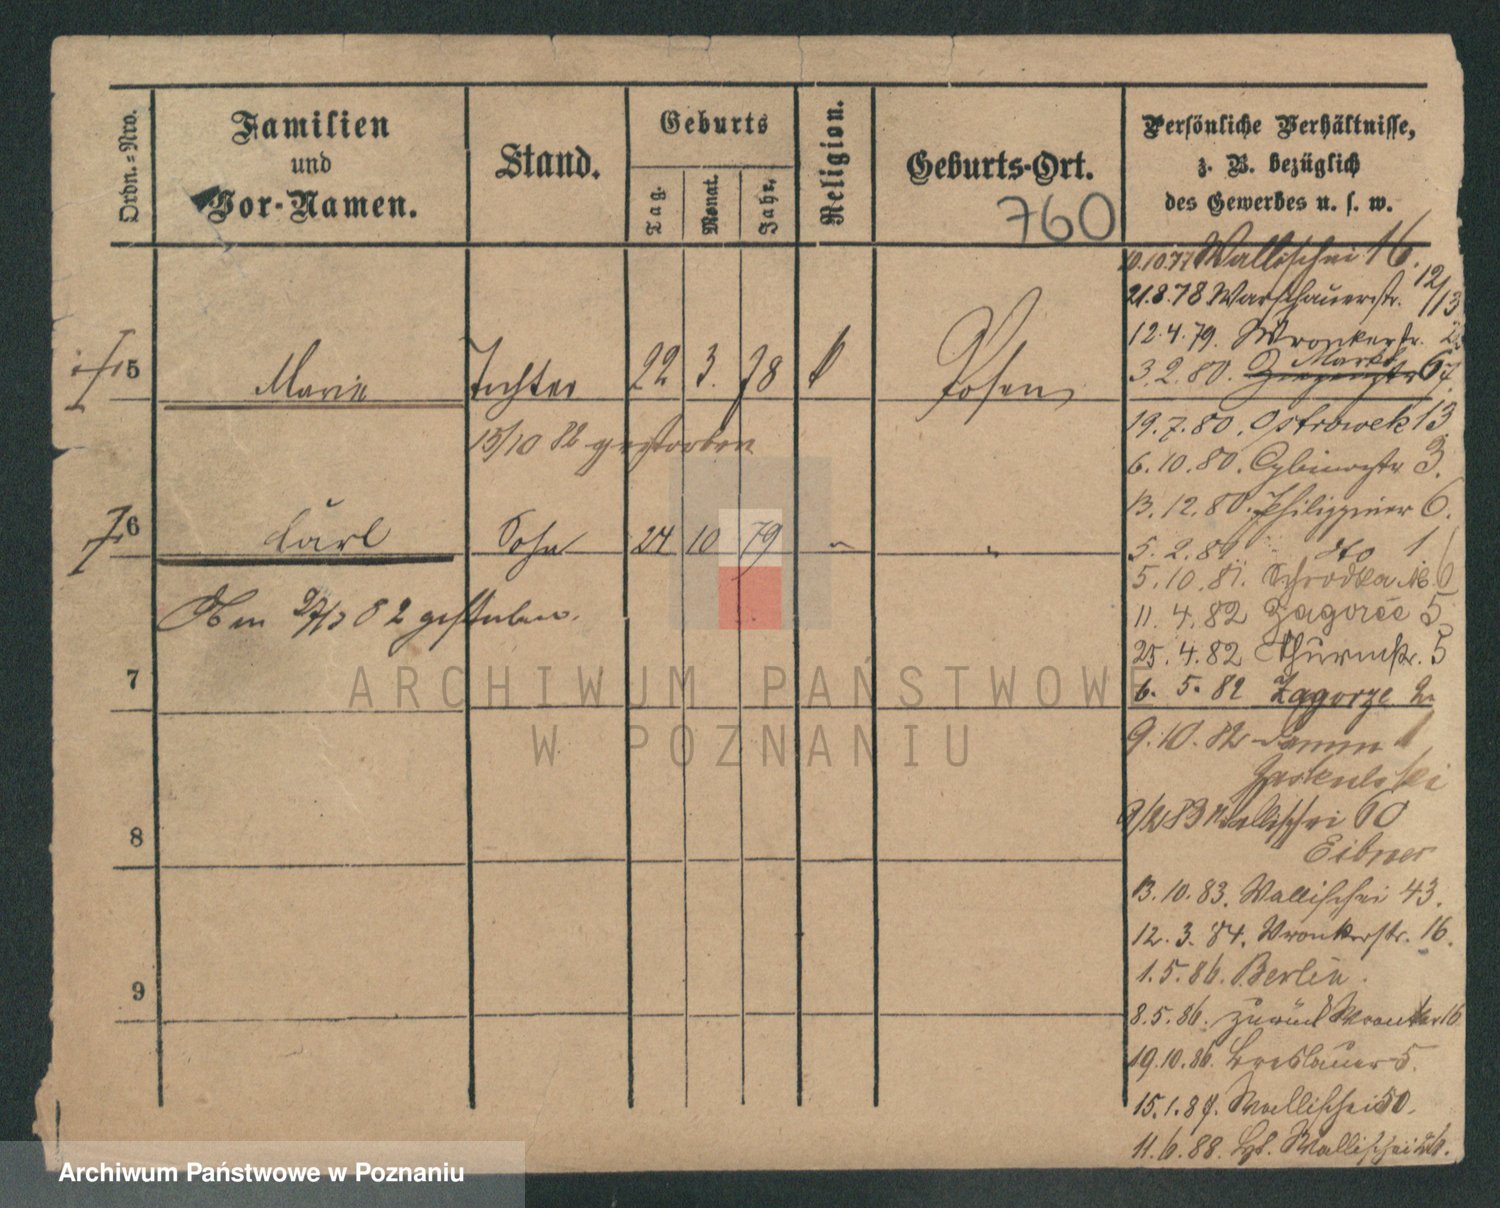 Ordn.=Nro.
Familien
und
Vor-Namen.
Stand.
Geburts
Tag.
Monat.
Jahr.
Religion.
Geburts-Ort.
760
Persönliche Verhältnisse,
z. B. bezüglich
des Gewerbes u. s. w.
10.10.77 Wallischei 16.
21.8.78 Warschauerstr. 12/13
12.4.79. Wronkerstr.
Markt
3.2.80. 67.
5 Marie Tochter 22 3. 78 k Posen
15/10 82 gestorben
19.7.80. Ostrowek 13
6.10.80. Cybinastr 3.
13.12.80. Philippiner 6.
6 Carl Sohn 24 10 79 " "
5.2.81 dto 1.
5.10.81. Schrodka M 6
Am 27/3 82 gestorben.
11.4.82 Zagorze 5
25.4.82 Thurmstr. 5
7
6.5.82 Zagorze
9.10.82 Damm 1
9/2 83 Wallischei 60
8
Eibner
13.10.83. Wallischei 43.
12.3.84. Wronkerstr. 16.
1.5.86. Berlin.
9
8.5.86. zurück Wronker 16
19.10.86. Breslauer 5.
15.1.87. Wallischei 50.
11.6.88. Wallischei
ARCHIWUM PAŃSTWOWE
W POZNANIU
Archiwum Państwowe w Poznaniu